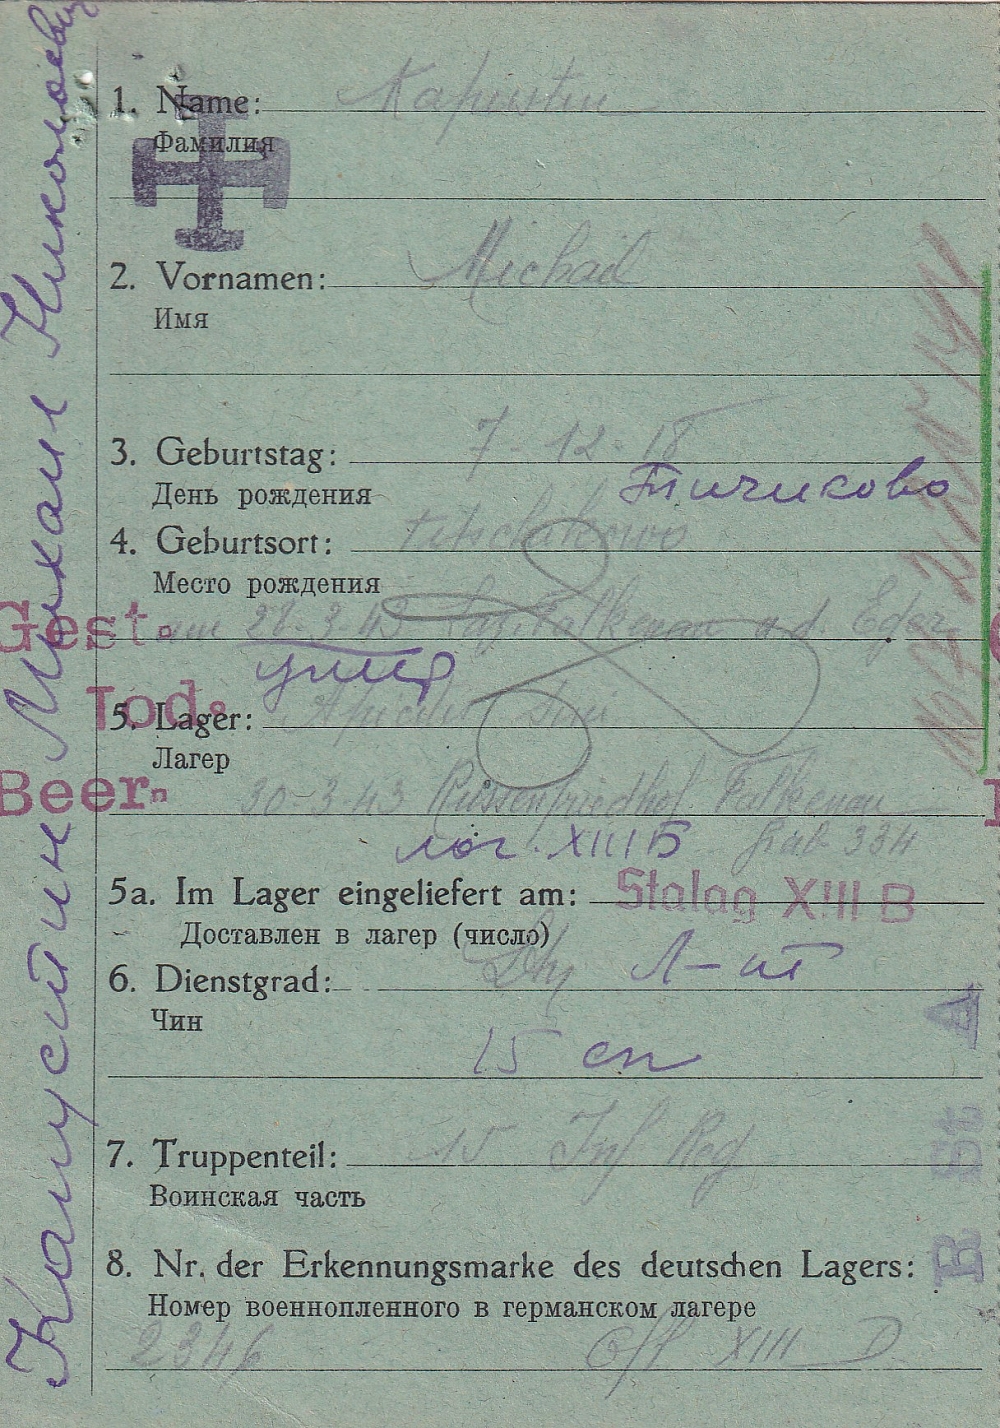 Капустин Михаил Николаевич
1. Name: Kapustin
Фамилия
2. Vornamen: Michail
Имя
3. Geburtstag: 7-12-18
День рождения
Тичиково
4. Geburtsort:
Место рождения
Gest.
am 28-3-43 Laz. Falkenau a.d. Eger
умер
Tod.
5. Lager:
Лагер
Beer.
30-3-43 Russenfriedhof Falkenau
лаг. XIII B Grab 334
5a. Im Lager eingeliefert am: Stalag XIII B
Доставлен в лагер (число)
6. Dienstgrad: Л-нт
Чин
15 сп
7. Truppenteil: 15 Inf Reg
Воинская часть
8. Nr. der Erkennungsmarke des deutschen Lagers:
Номер военнопленного в германском лагере
2346 Off XIII D